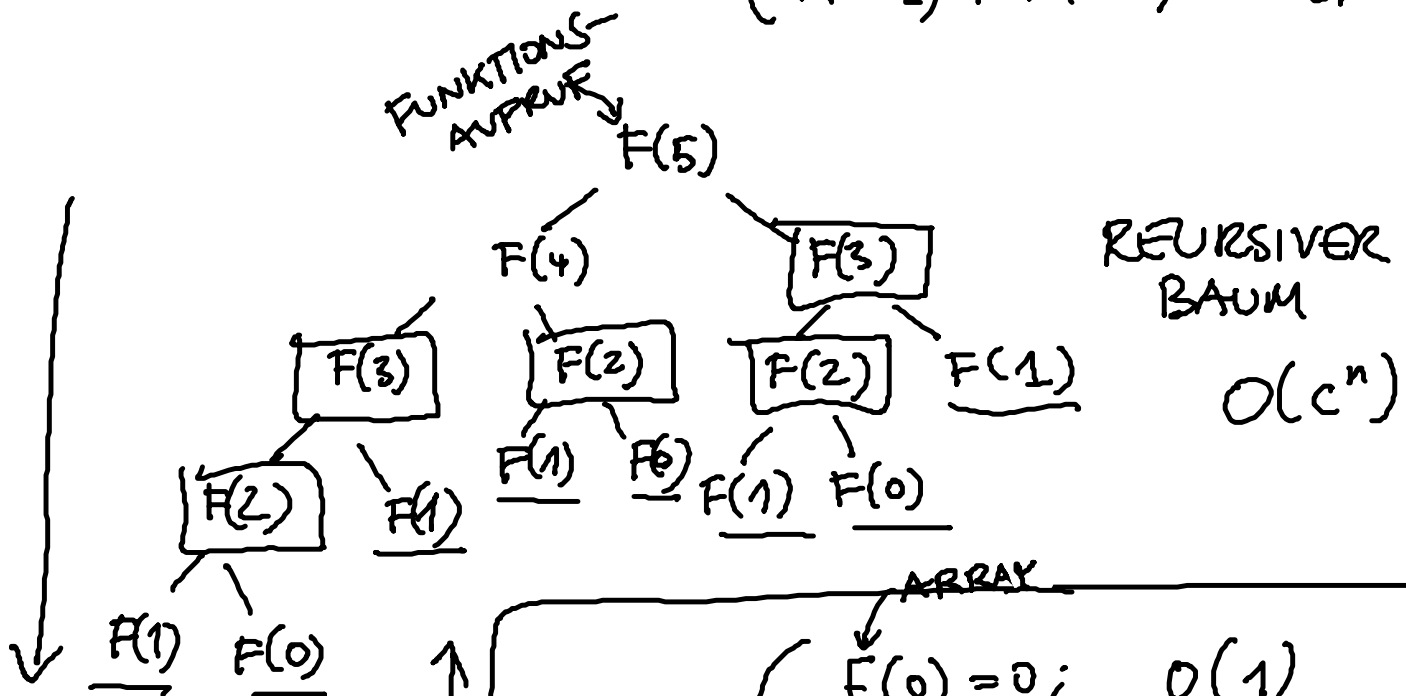 FUNKTIONS-
AUFRUF
F(5)
F(4) F(3)
REURSIVER
BAUM
F(3) F(2) F(2) F(1)
O(cⁿ)
F(1) F(0) F(1) F(0)
F(2) F(1)
F(1) F(0)
ARRAY
F(0) = 0; O(1)